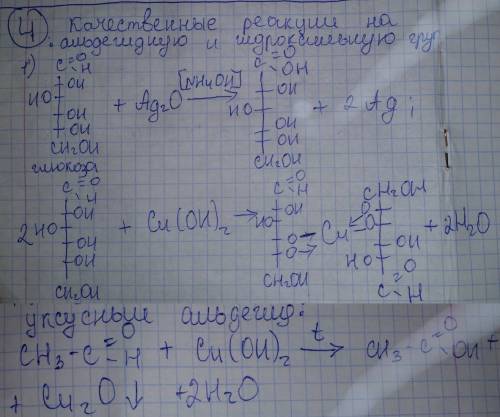 4 Качественные реакции на
альдегидную и гидроксильную груп
1) C=O H OH HO OH OH CH2OH + Ag2O [NH4OH] → C=O OH OH HO OH OH CH2OH + 2Ag ;
глюкоза
2 C=O H OH HO OH OH CH2OH + Cu(OH)2 → C=O H OH HO O O CH2OH Cu CH2OH O O OH HO C=O H + 2H2O
уксусный альдегид:
CH3-C=O H + Cu(OH)2 t → CH3-C=O OH +
+ Cu2O ↓ + 2H2O